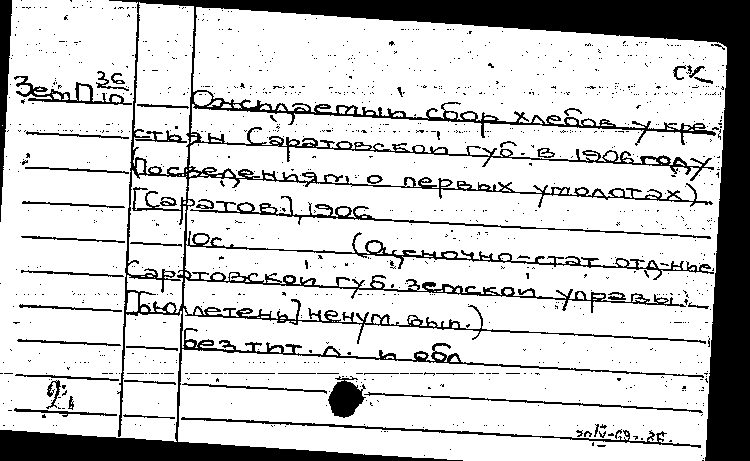 СК
ЗемП 36/10 Ожидаемый сбор хлебов у кре-
стьян Саратовской губ. в 1906 году
(По сведениям о первых умолотах)
[Саратов], 1906
10с. (Оценочно-стат отд-ние
Саратовской губ. земской управы.
[Бюллетень] ненум. вып.)
Без тит. л. и обл
2